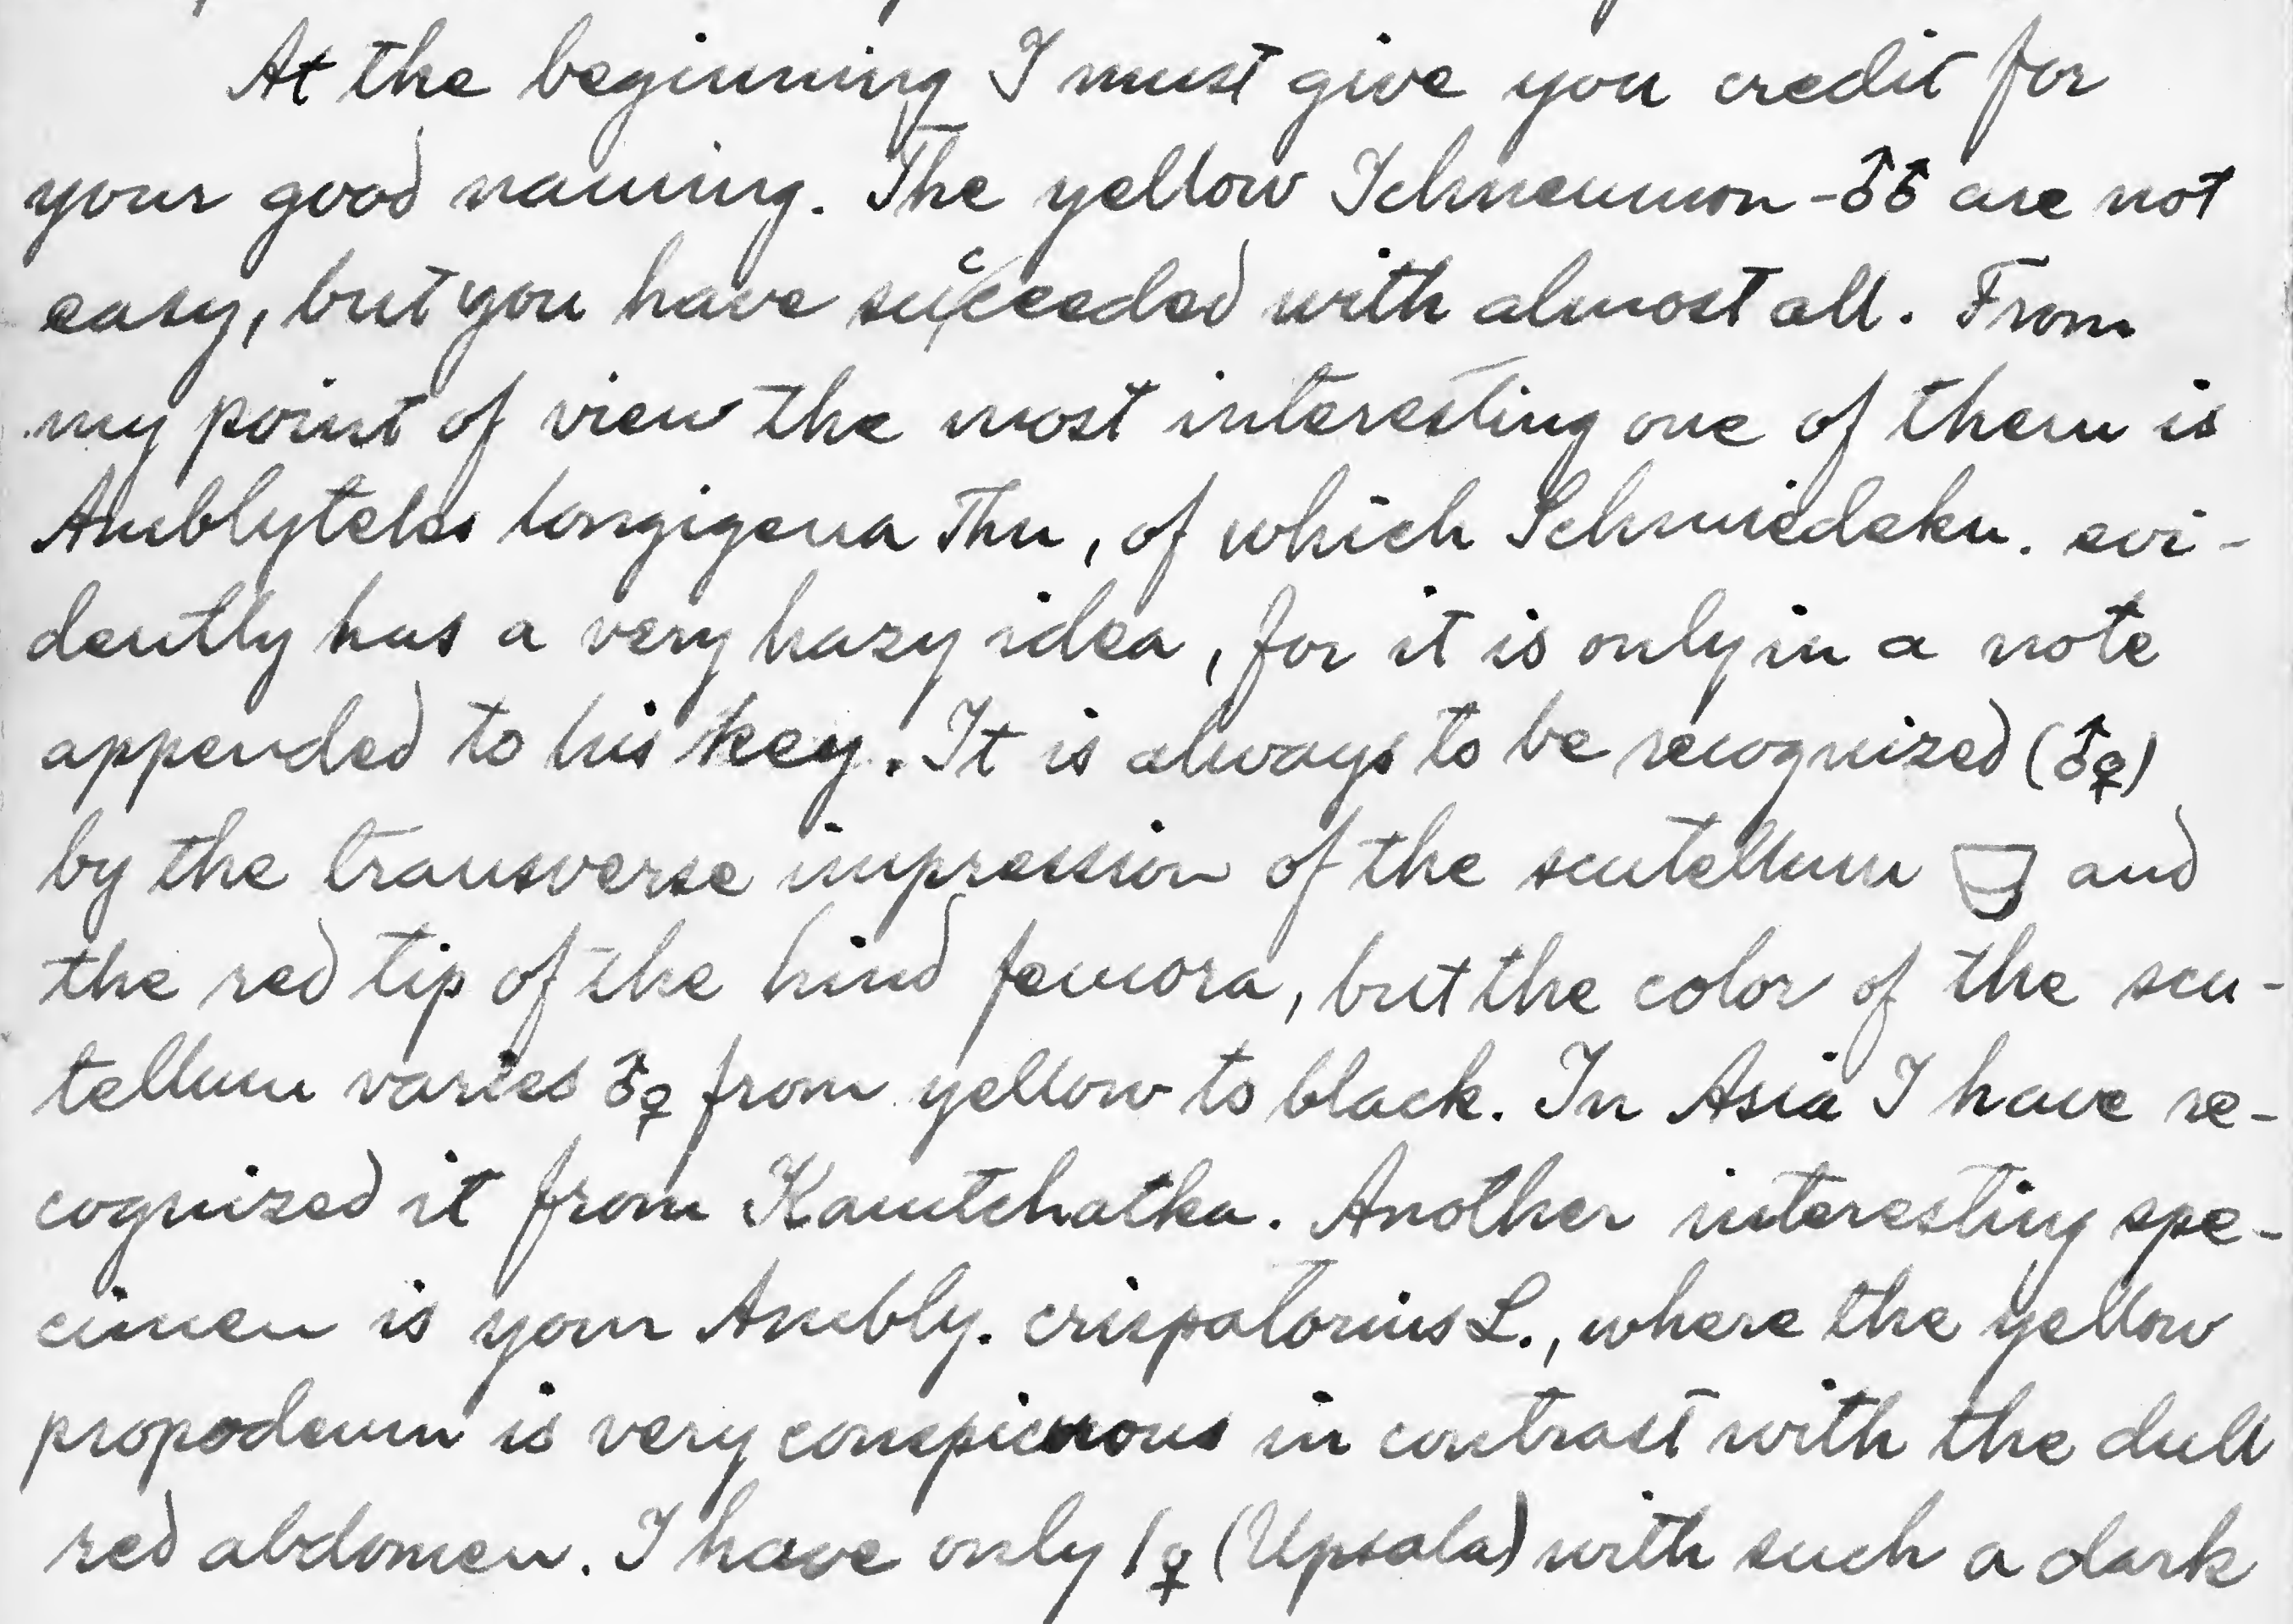 At the beginning I must give you credit for
your good naming. The yellow Ichneumon-♂♂ are not
easy, but you have succeeded with almost all. From
my point of view the most interesting one of them is
Amblyteles longigena Thn, of which Schmiedekn. evi-
dently has a very hazy idea, for it is only in a note
appended to his key. It is always to be recognized (♂♀)
by the transverse impression of the scutellum and
the red tip of the hind femora, but the color of the scu-
tellum varies ♂♀ from yellow to black. In Asia I have re-
cognized it from Kamtchatka. Another interesting spe-
cimen is your Ambly. crispatorius L., where the yellow
propodeum is very conspicuous in contrast with the dull
red abdomen. I have only 1♀ (Upsala) with such a dark